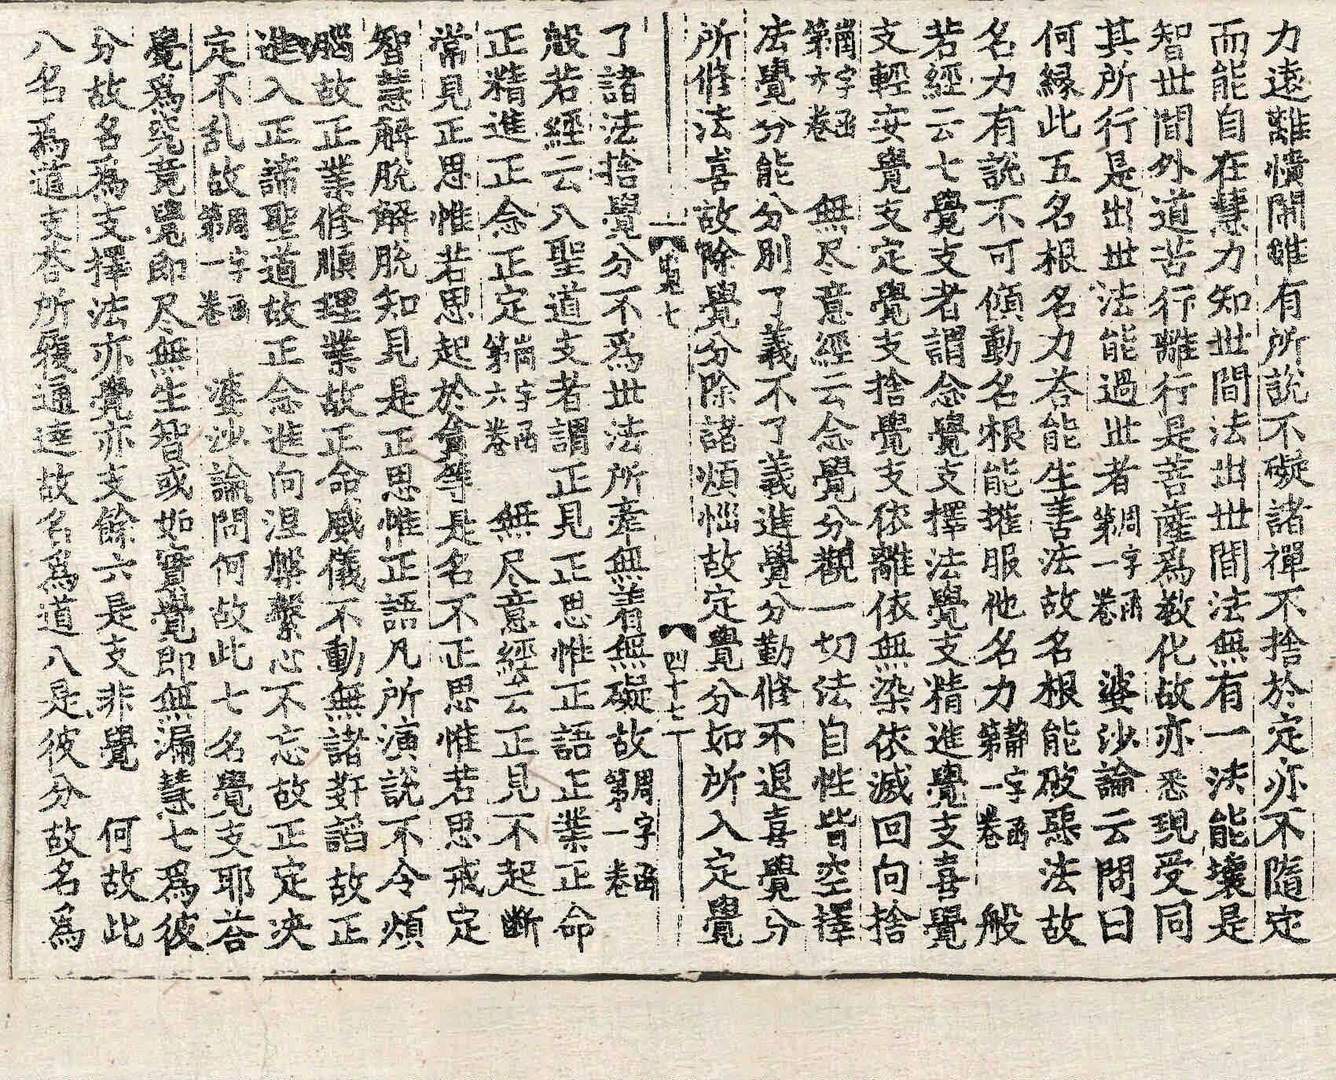 力遠離憒閙雖有所說不礙諸禪不捨於定亦不隨定
而能自在慧力知世間法出世間法無有一法能壞是
智世間外道苦行離行是菩薩爲教化故亦悉現受同
其所行是出世法能過世者周字函第一卷 婆沙論云問曰
何緣此五名根名力荅能生善法故名根能破惡法故
名力有說不可傾動名根能摧服他名力靜字函第一卷 般
若經云七覺支者謂念覺支擇法覺支精進覺支喜覺
支輕安覺支定覺支捨覺支依離依無染依滅回向捨
崗字函第六卷 無尽意經云念覺分觀一切法自性皆空擇
法覺分能分別了義不了義進覺分勤修不退喜覺分
所修法喜故除覺分除諸煩惱故定覺分如所入定覺
七 四十七
了諸法捨覺分不爲世法所牽無著無礙故周字函第一卷
般若經云八聖道支者謂正見正思惟正語正業正命
正精進正念正定崗字函第六卷 無尽意經云正見不起斷
常見正思惟若思起於貪等是名不正思惟若思戒定
智慧解脫解脫知見是正思惟正語凡所演說不令煩
腦故正業修順理業故正命威儀不動無諸姧謟故正
進入正諦聖道故正念進向涅槃繫心不忘故正定决
定不乱故周字函第一卷 婆沙論問何故此七名覺支耶荅
覺爲究竟覺即尽無生智或如實覺即無漏慧七爲彼
分故名爲支擇法亦覺亦支餘六是支非覺 何故此
八名爲道支荅所履通達故名爲道八是彼分故名爲